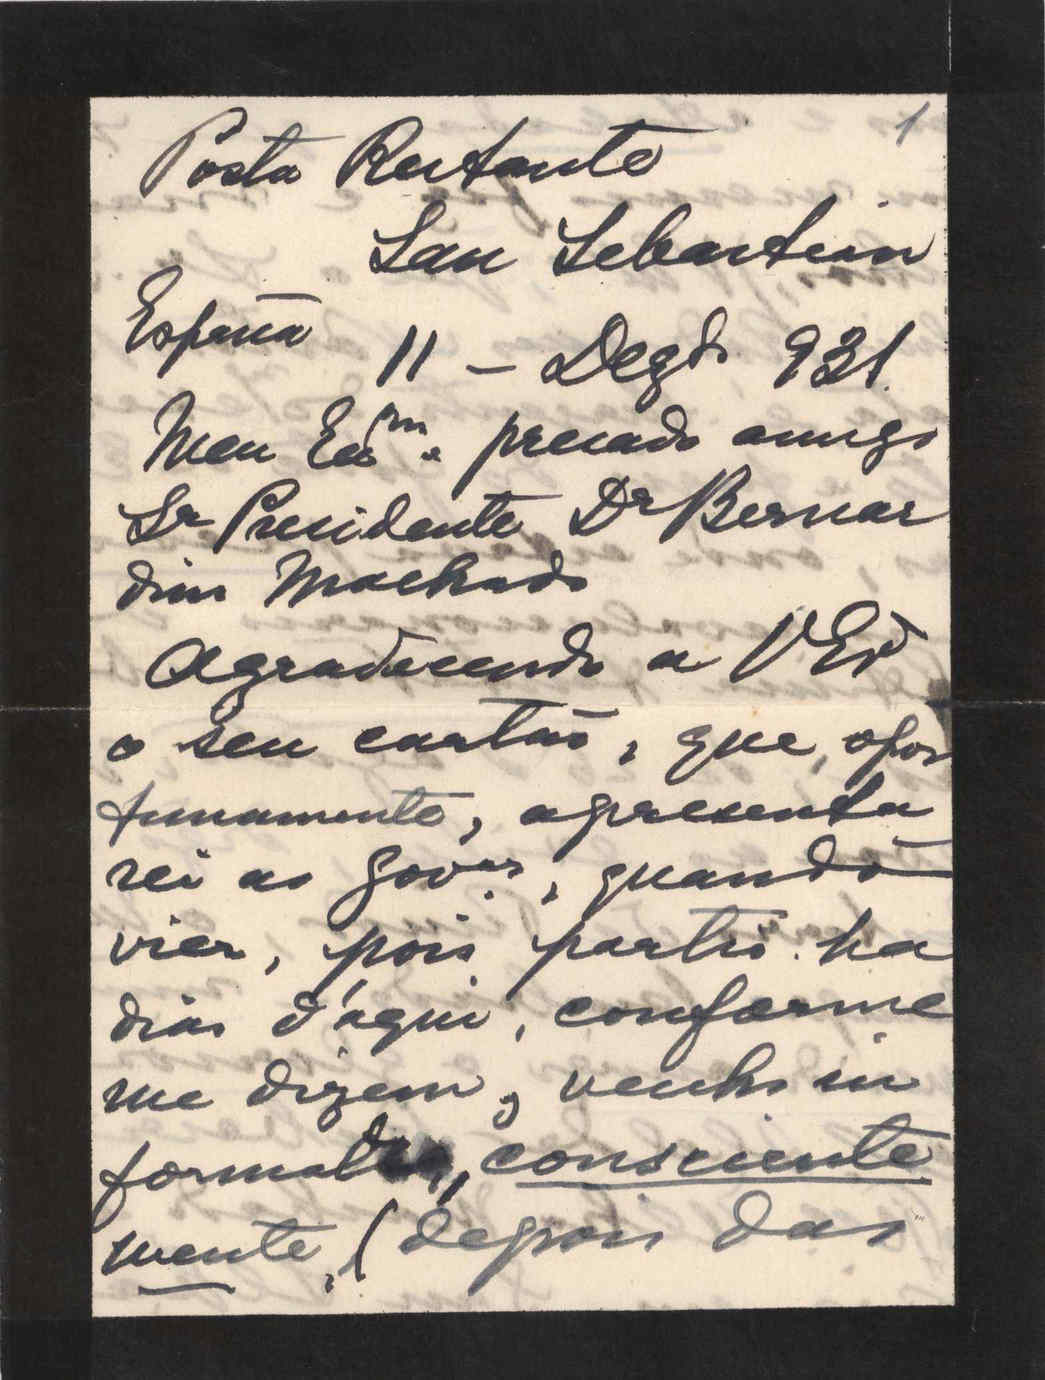 1
Posta Restante
San Sebastian
España 11 – Dezº 931.
Meu Exmº. presado amigo
Sr Presidente Dr Bernar
dino Machado
Agradecendo a V Exª
o seu cartão, que, opor
tunamente, apresenta
rei ao Govor., quando
vier, pois partio ha
dias d'aqui, conforme
me dizem, venho in
formal-o, consciente
mente, (depois das